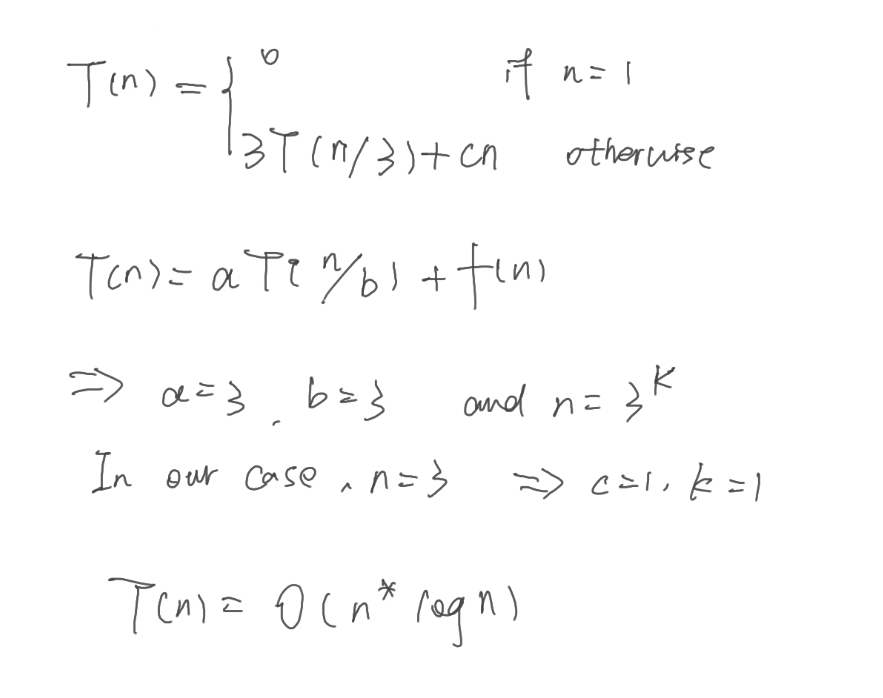 T(n) = { 0 if n = 1
3T(n/3) + cn otherwise
T(n) = aT(n/b) + f(n)
⇒ a = 3, b = 3 and n = 3^k
In our case, n = 3 ⇒ c = 1, k = 1
T(n) = O(n * log n)